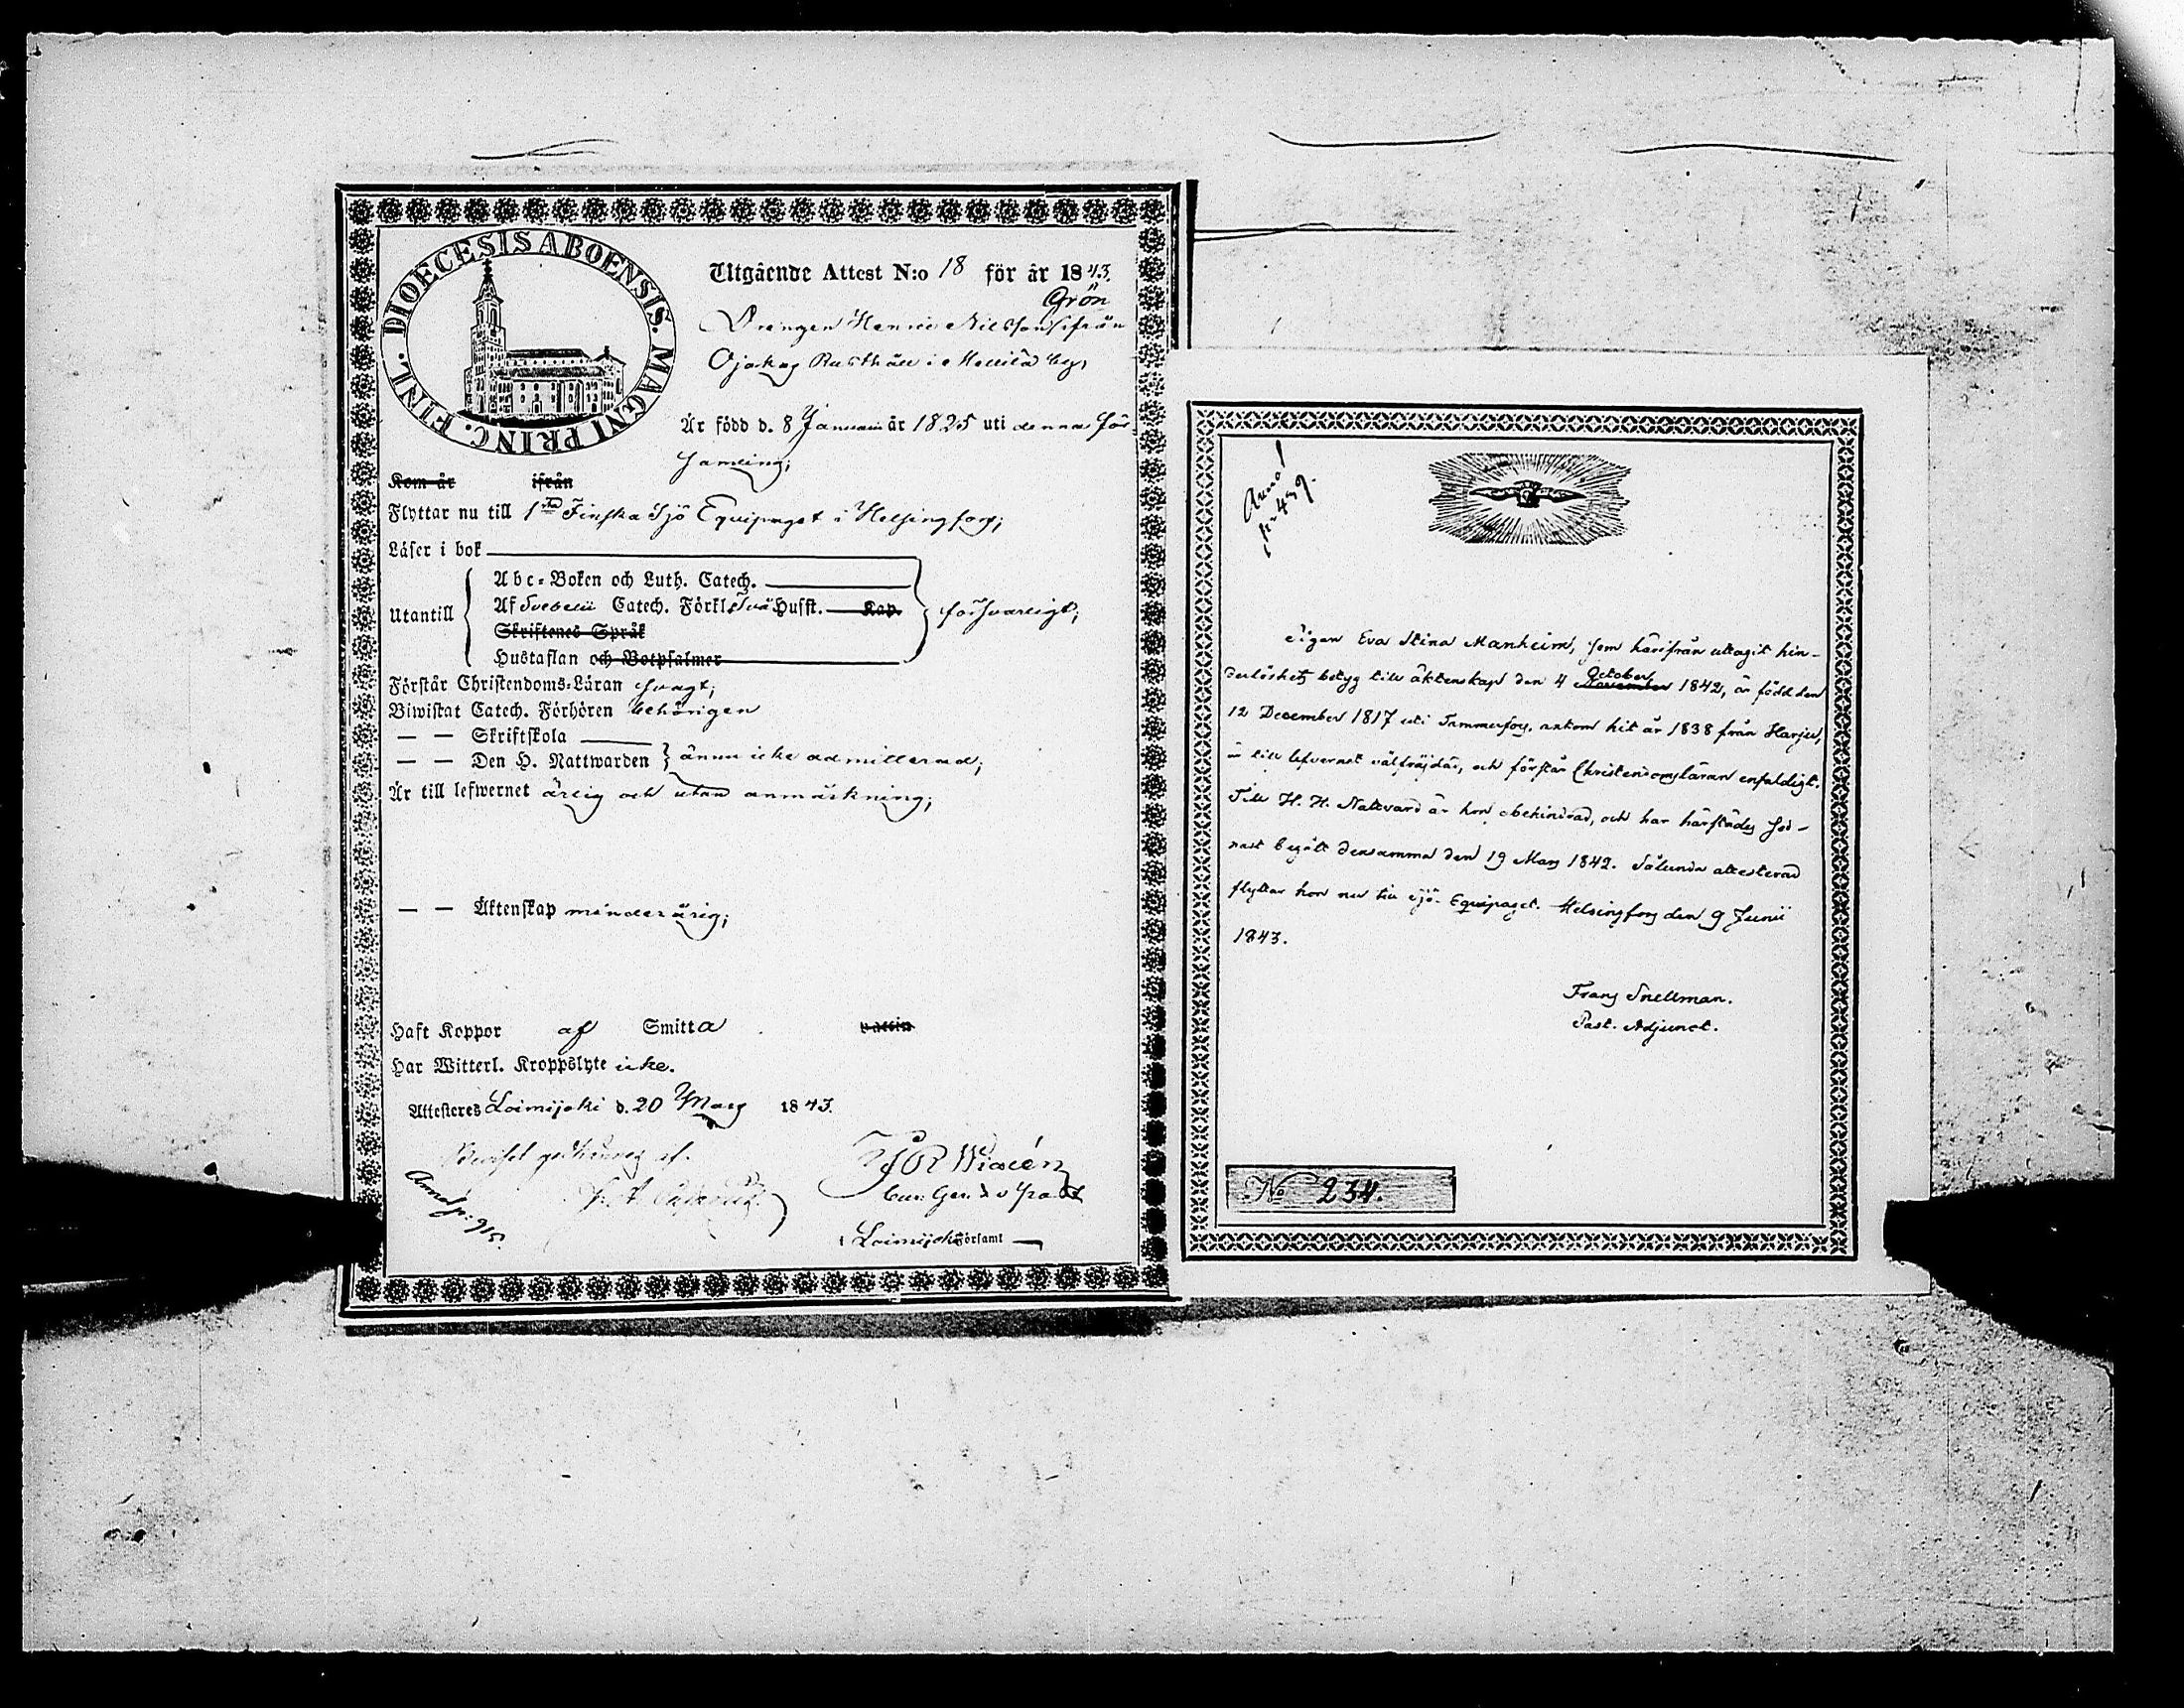 DIOECESIS ABOENSIS. MAGNI PRINC. FINL.
Utgående Attest N:o 18 för år 1843.
Grön
Drengen Henric Nilsson ifrån
Ojakas Rusthåll i Mellilä by,
Är född d. 8 Januarii år 1825 uti denna för-
samling;
Kom år ifrån
Flyttar nu till 1sta Finska Sjö Equipaget i Helsingfors;
Läser i bok
Abc-Boken och Luth. Catech.
Utantill Af Svebelii Catech. Förkl. Två Husst. Kap. försvarligt;
Skriftenes Språk
Hustaflan och Botpsalmer
Förstår Christendoms-Läran svagt;
Biwistat Catech. Förhören behörigen
— — Skriftskola
— — Den H. Nattwarden ännu icke admitterad;
Är till lefwernet ärlig och utan anmärkning;
— — Äktenskap minderårig;
Haft Koppor af Smitta vaccin
Har Witterl. Kroppslyte icke.
Attesteres Loimijoki d. 20 Mars 1843.
af.
Loimijoki Församl
Anno!
Pigan Eva Stina Manheim, som härifrån uttagit hin-
October
derlöshets betyg till äktenskap den 4 November 1842, är född den
12 December 1817 uti Tammerfors, ankom hit år 1838 från Harju,
är till lefvernet välfräjdad, och förstår Christendomsläran enfaldigt.
Till H. H. Nattvard är hon obehindrad, och har härstädes sed-
nast begått densamma den 19 Mars 1842. Sålunda attesterad
flyttar hon nu till Sjö-Equipaget. Helsingfors den 9 Junii
1843.
Frans Snellman.
Past. Adjunct.
No 234.